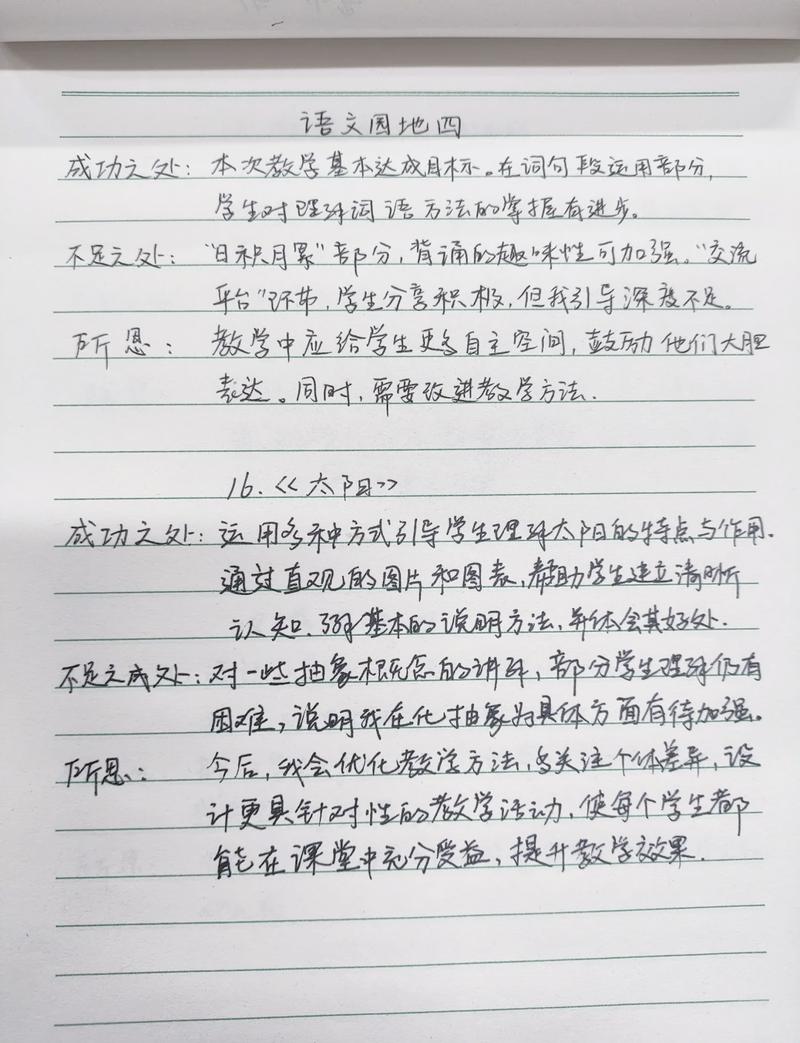 语文园地四
成功之处：本次教学基本达成目标。在词句段运用部分，
学生对理解词语方法的掌握有进步。
不足之处：“日积月累”部分，背诵的趣味性可加强。“交流
平台”环节，学生分享积极，但我引导深度不足。
所思：教学中应给学生更多自主空间，鼓励他们大胆
表达。同时，需要改进教学方法.
16.《太阳》
成功之处：运用多种方式引导学生理解太阳的特点与作用.
通过直观的图片和图表，帮助学生建立清晰
认知、了解基本的说明方法，并体会其好处.
不足之成处：对一些抽象概念的讲解，部分学生理解仍有
困难，说明我在化抽象为具体方面有待加强。
所思：今后，我会优化教学方法，多关注个体差异，设
计更具针对性的教学活动，使每个学生都
能在课堂中充分受益，提升教学效果.